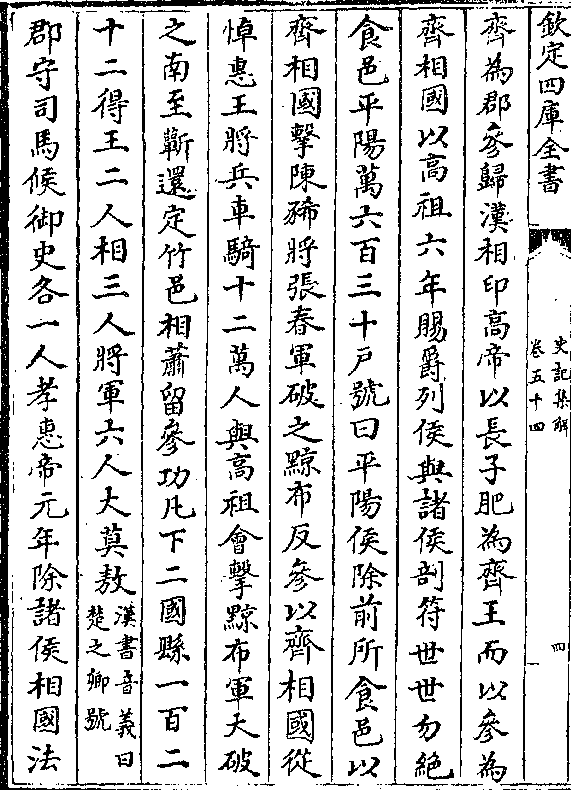 欽定四庫全書
史記集解
卷五十四
四
齊為郡參歸漢相印高帝以長子肥為齊王而以參為
齊相國以高祖六年賜爵列侯與諸侯剖符世世勿絕
食邑平陽萬六百三十戶號曰平陽侯除前所食邑以
齊相國擊陳豨將張春軍破之黥布反參以齊相國從
悼惠王將兵車騎十二萬人與高祖會擊黥布軍大破
之南至蘄還定竹邑相蕭留參功凡下二國縣一百二
十二得王二人相三人將軍六人大莫敖漢書音義曰
楚之卿號
郡守司馬候御史各一人孝惠帝元年除諸侯相國法